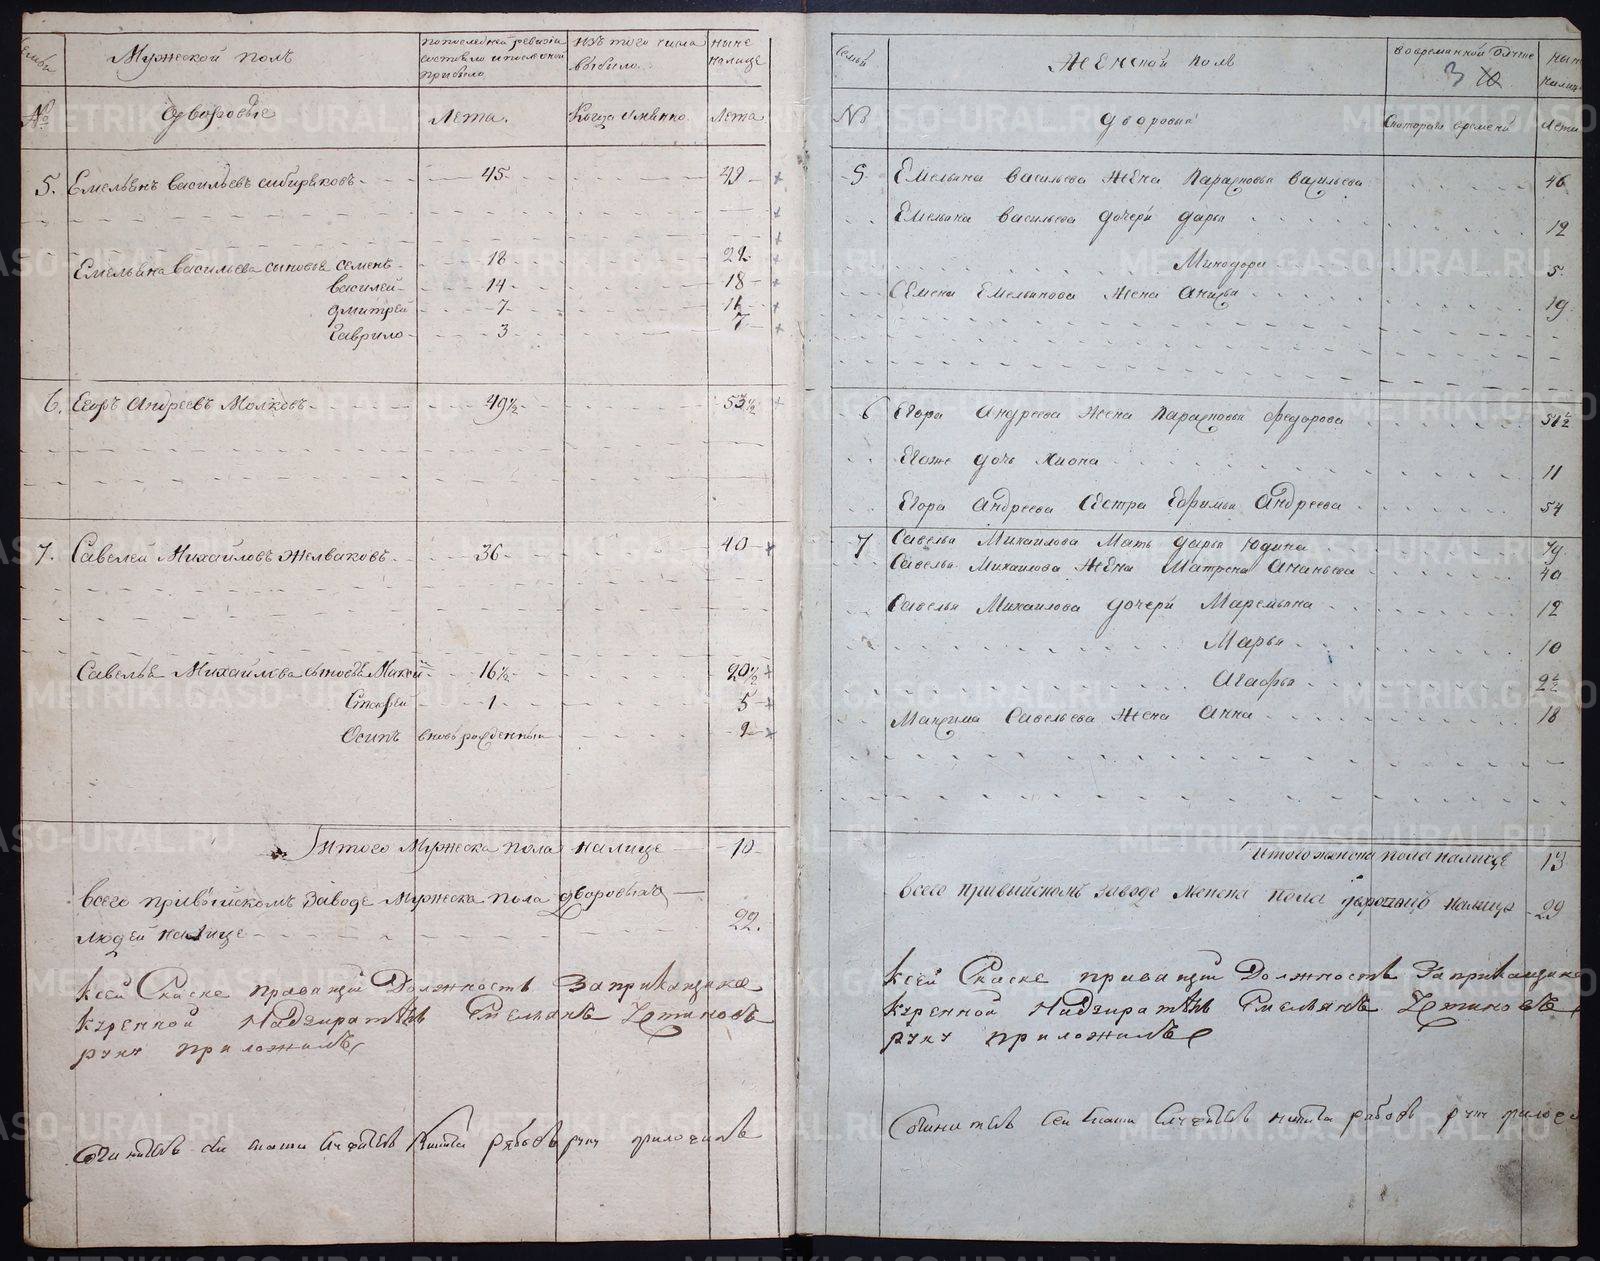 Семьи
Мужеской полъ
по последней ревизiи состояло и после оной прибыло
изъ того числа выбыло
ныне налице
№
Дворовые
Лета.
Когда имянно.
Лета
5. Емельянъ васильевъ сибиряковъ 45 49
Емельяна васильева сыновья семенъ 18 22
василей 14 18
дмитрей 7 11
Гаврило 3 7
6. Егоръ Андреевъ Молковъ 49½ 53½
7. Савелей Михайловъ Желваковъ 36 40
Савелья Михайлова сыновья Максим 16½ 20½
1 5
Осипъ вновь рожденный 2
Итого Мужеска пола налице 10
всего при выйскомъ заводе Мужеска пола дворовыхъ
людей налице 22.
ксей Скаске правящий Должность Заприкащика
куренной Надзиратель Емельянъ Устиновъ
руку приложилъ
Сочинитель сей никита рябовъ руку приложилъ
Семьи
Женской полъ
во временной отлучке
3
ныне налице
№
дворовыя
Скоторого времени
Лета
5 Емельяна васильева жена Парасковья васильева 46
Емельяна васильева дочери дарья 12
Минодора 5
Семена Емельянова жена Анисья 19
6 Егора Андреева жена Парасковья Федорова 51½
Егоже дочь Хиона 11
Егора Андреева Сестра Ефимья Андреева 54
7 Савелья Михайлова Мать дарья Юдина 79
Савелья Михайлова жена Матрена Ананьева 40
Савелья Михайлова дочери Маремьяна 12
Марья 10
Агафья 2½
Максима Савельева жена Анна 18
итого женска пола налице 13
всего при выйскомъ заводе женска пола налице 29
ксей Скаске правящий Должность Заприкащика
куренной Надзиратель Емельянъ Устиновъ
руку приложилъ
Сочинитель сей никита рябовъ руку
METRIKI.GASO-URAL.RU